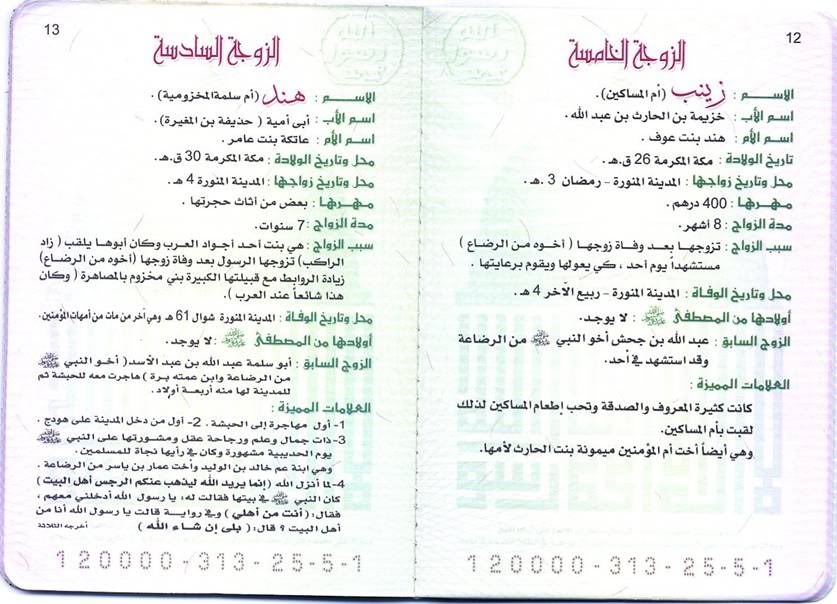 12
الزوجة الخامسة
الاســـــم : زينب (أم المساكين).
اسم الأب : خزيمة بن الحارث بن عبد الله.
اسم الأم : هند بنت عوف.
تاريخ الولادة : مكة المكرمة 26 ق.هـ.
محل وتاريخ زواجها : المدينة المنورة - رمضان 3 هـ.
مهـرهـا : 400 درهم.
مدة الزواج : 8 أشهر.
سبب الزواج : تزوجها بعد وفاة زوجها ( أخوه من الرضاع )
مستشهداً يوم أحد ، كي يعولها ويقوم برعايتها .
محل وتاريخ الوفاة : المدينة المنورة - ربيع الآخر 4 هـ.
أولادها من المصطفى ﷺ : لا يوجد.
الزوج السابق : عبد الله بن جحش أخو النبي ﷺ من الرضاعة
وقد استشهد في أحد.
العلامات المميزة :
كانت كثيرة المعروف والصدقة وتحب إطعام المساكين لذلك
لقبت بأم المساكين.
وهي أيضاً أخت أم المؤمنين ميمونة بنت الحارث لأمها.
120000-313-25-5-1
13
الزوجة السادسة
الاســـــم : هند (أم سلمة المخزومية) .
اسم الأب : أبى أمية ( حذيفة بن المغيرة).
اسم الأم : عاتكة بنت عامر .
محل وتاريخ الولادة : مكة المكرمة 30 ق.هـ.
محل وتاريخ زواجها : المدينة المنورة 4 هـ.
مهـرهـا : بعض من أثاث حجرتها .
مدة الزواج : 7 سنوات.
سبب الزواج : هي بنت أحد أجواد العرب وكان أبوها يلقب ( زاد
الراكب) تزوجها الرسول بعد وفاة زوجها (أخوه من الرضاع)
زيادة الروابط مع قبيلتها الكبيرة بني مخزوم بالمصاهرة ( وكان
هذا شائعاً عند العرب ).
محل وتاريخ الوفاة : المدينة المنورة شوال 61 هـ وهي آخر من مات من أمهات المؤمنين.
أولادها من المصطفى ﷺ : لا يوجد.
الزوج السابق : أبو سلمة عبد الله بن عبد الأسد (أخو النبي ﷺ
من الرضاعة وابن عمته برة ) هاجرت معه للحبشة ثم
للمدينة لها منه أربعة أولاد.
العلامات المميزة :
1- أول مهاجرة إلى الحبشة . 2- أول من دخل المدينة على هودج .
3- ذات جمال وعلم ورجاحة عقل ومشورتها على النبي ﷺ
يوم الحديبية مشهورة وكان في رأيها نجاة للمسلمين.
وهي ابنة عم خالد بن الوليد وأخت عمار بن ياسر من الرضاعة .
4- لما أنزل الله (إنما يريد الله ليذهب عنكم الرجس أهل البيت )
كان النبي ﷺ في بيتها فقالت له: يا رسول الله أدخلني معهم ،
فقال: (أنت من أهلي ) وفي رواية قالت يا رسول الله أنا من
أهل البيت ؟ قال: ( بلى إن شاء الله ) أخرجه الثلاثة
120000-313-25-5-1